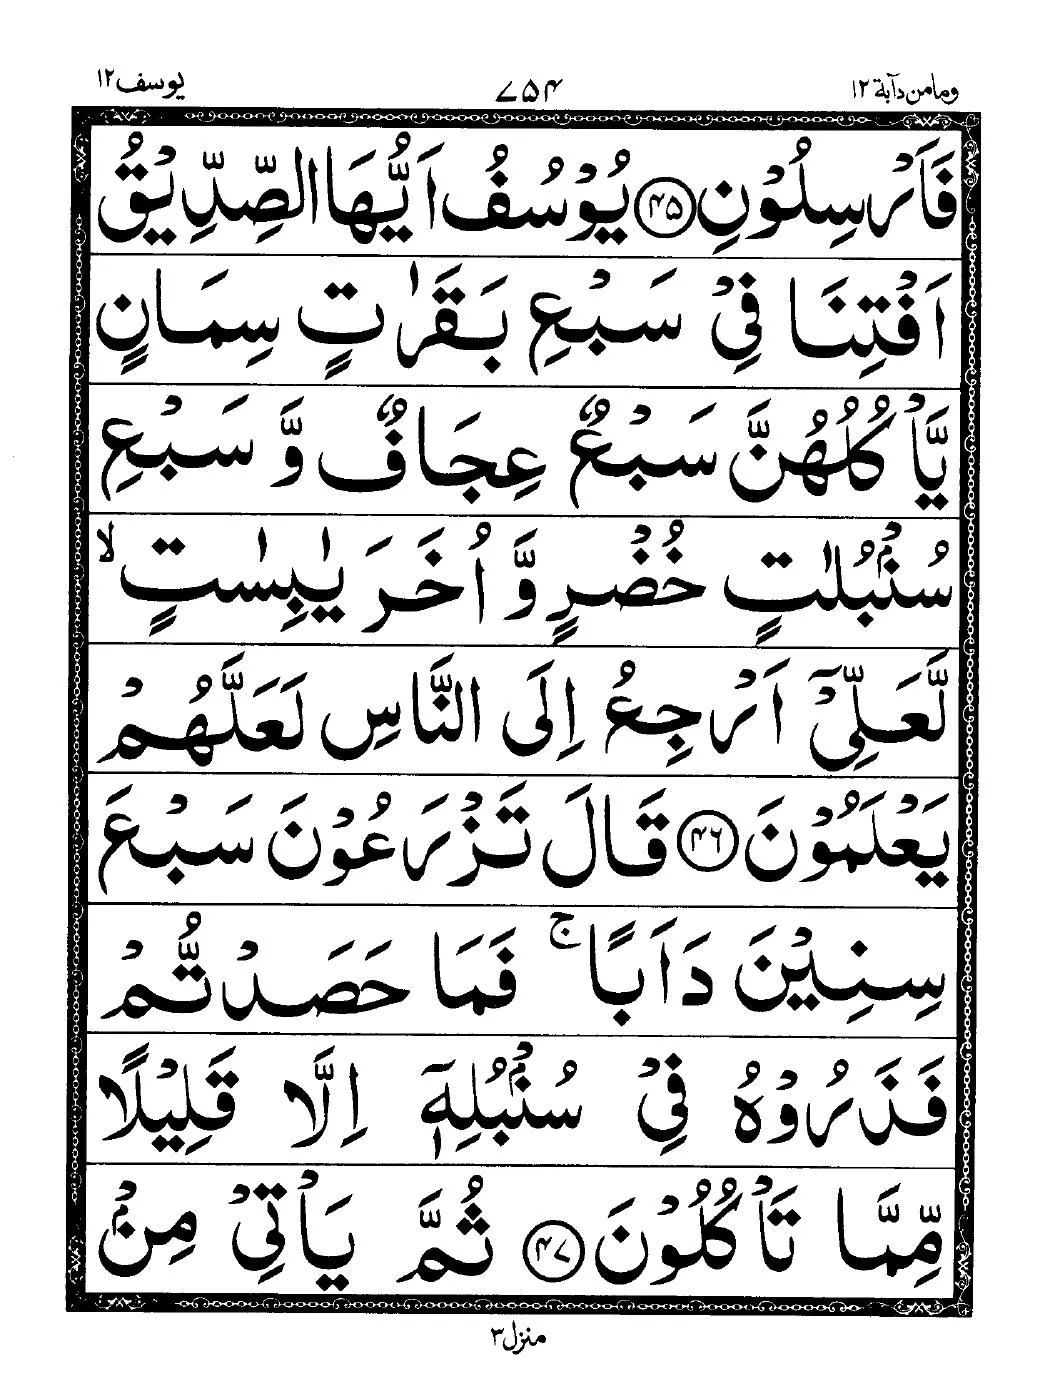 وما من دآبة ١٢ ٧٥۴ يوسف ١٢
فَاَرْسِلُوْنِ ۴۵ يُوْسُفُ اَيُّهَا الصِّدِّيْقُ
اَفْتِنَا فِيْ سَبْعِ بَقَرٰتٍ سِمَانٍ
يَّاْكُلُهُنَّ سَبْعٌ عِجَافٌ وَّ سَبْعِ
سُنْۢبُلٰتٍ خُضْرٍ وَّ اُخَرَ يٰبِسٰتٍ ۙ
لَّعَلِّيْٓ اَرْجِعُ اِلَى النَّاسِ لَعَلَّهُمْ
يَعْلَمُوْنَ ۴۶ قَالَ تَزْرَعُوْنَ سَبْعَ
سِنِيْنَ دَاَبًا ۚ فَمَا حَصَدْتُّمْ
فَذَرُوْهُ فِيْ سُنْۢبُلِهٖٓ اِلَّا قَلِيْلًا
مِّمَّا تَاْكُلُوْنَ ۴۷ ثُمَّ يَاْتِيْ مِنْۢ
منزل ٣